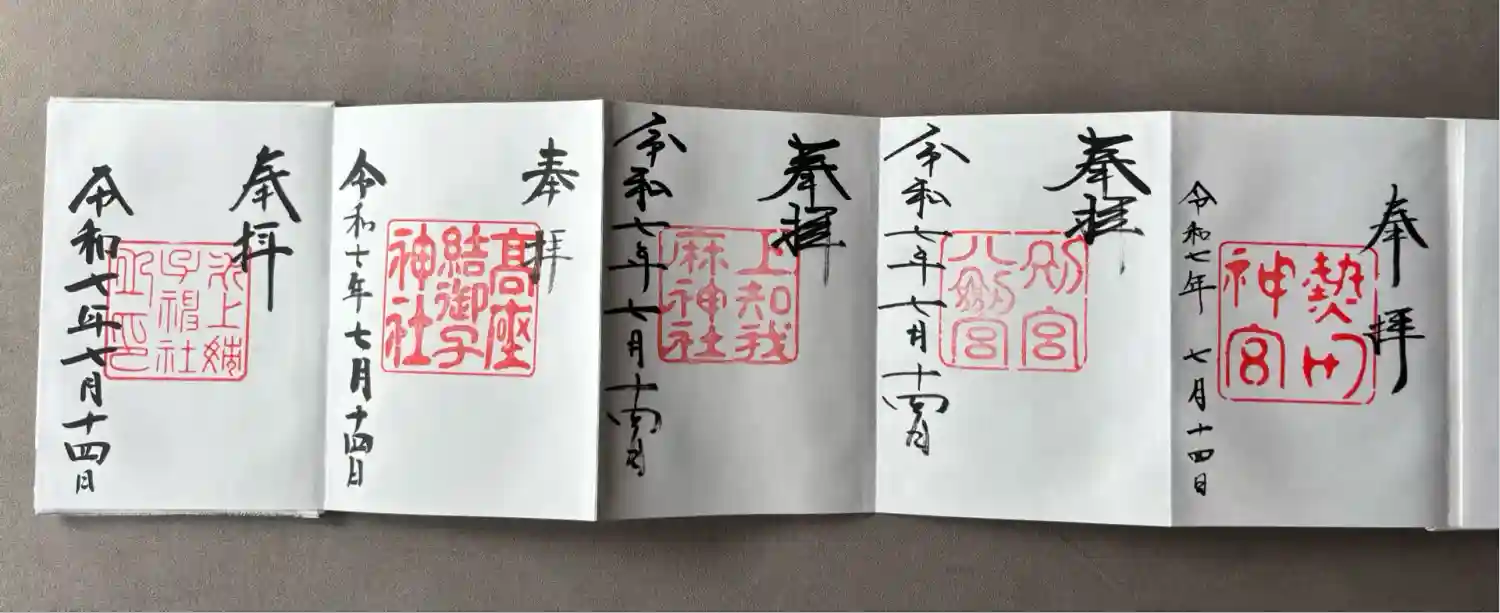 奉拝
熱田
神宮
令和七年 七月十四日
奉拝
別宮
八剱宮
令和七年七月十四日
奉拝
上知我
麻神社
令和七年七月十四日
奉拝
髙座
結御子
神社
令和十年七月十四日
奉拝
氷上姉
子神社
之印
令和七年七月十四日